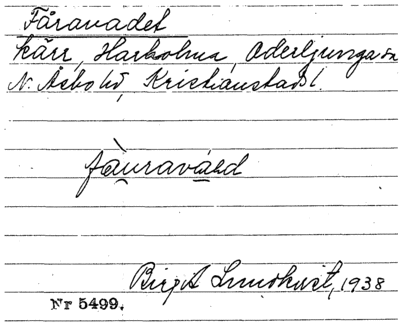 Fåravadet
kärr, Harholma, Oderljunga sn
N. Åsbo hd, Kristianstads l.
fàuravàd
Birgit Lundkvist, 1938
Nr 5499.